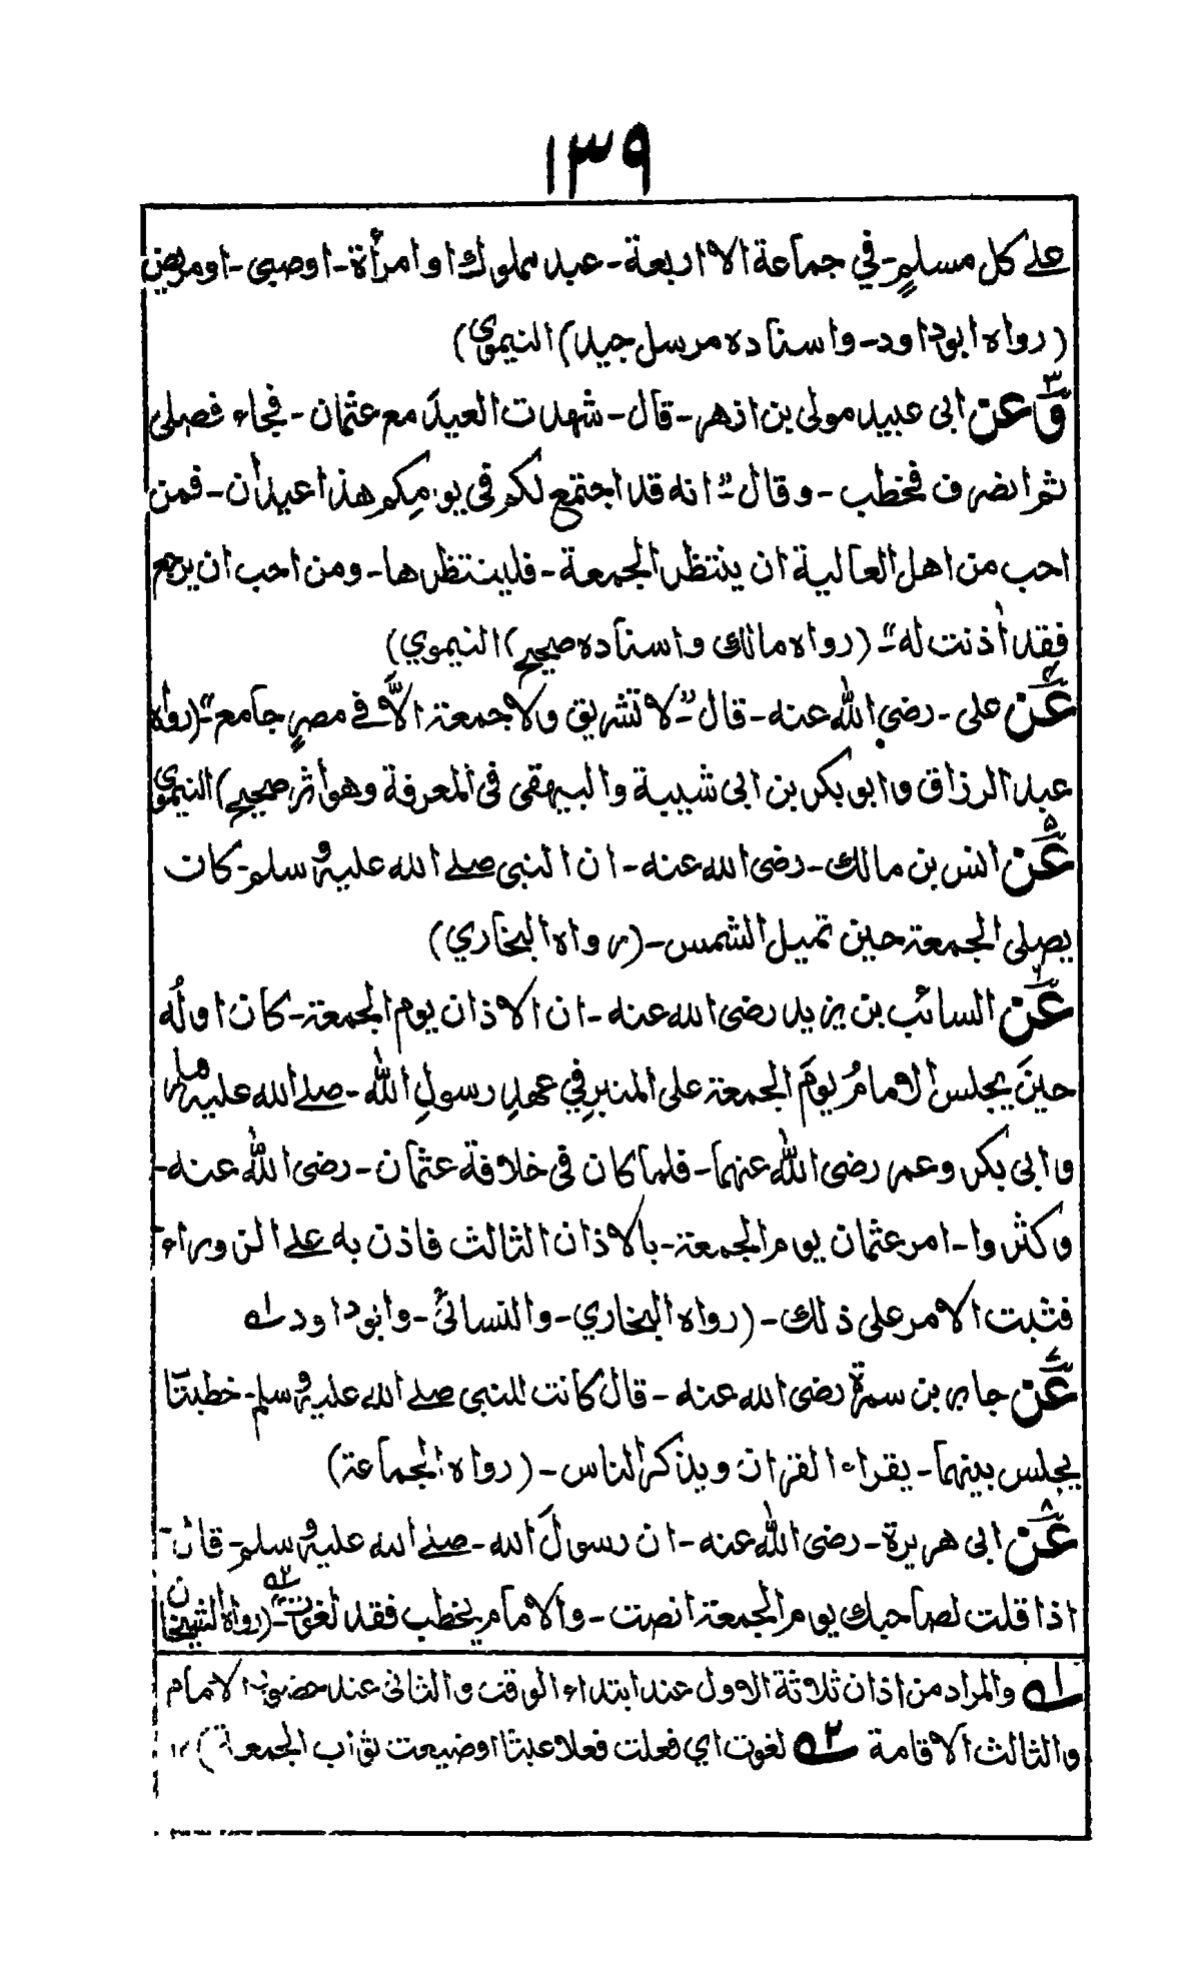 ١٣٩
علے كل مسلمٍ - في جماعة الا اربعة - عبد مملوك او امرأة - او صبي - او مريض
(رواه ابوداود - واسناده مرسل جيد) النيموي)
٣ وَعن ابى عبيد مولى بن ازهر - قال - شهدت العيدَ مع عثمان - فجاء فصلى
ثم انصرف فخطب - وقال - " انه قد اجتمع لكم في يومِكم هذا عيدان - فمن
احب من اهل العالية ان ينتظر الجمعة - فلينتظرها - ومن احب ان يرجع
فقد أذنت له " - (رواه مالك واسناده صحيح) النيموي)
٤ عَن على - رضي الله عنه - قال - " لا تشريق ولا جمعة الاَّ في مصرٍ جامع " - (رواه
عبد الرزاق وابو بكر بن ابى شيبة والبيهقى فى المعرفة وهو أثر صحيح) النيموي
٥ عَن انس بن مالك - رضى الله عنه - ان النبي صلے الله عليه وسلم - كان
يصلى الجمعة حين تميل الشمس - (رواه البخاري)
٦ عَن السائب بن يزيد رضى الله عنه - ان الاذان يوم الجمعة - كان اولُه
حينَ يجلس الامامُ يومَ الجمعة على المنبرِ في عهدِ رسولِ الله - صلے الله عليه وسلم
وابى بكر وعمر رضى الله عنهما - فلما كان فى خلافة عثمان - رضى الله عنه -
وكثروا - امر عثمان يوم الجمعة - بالاذان الثالث فاذن به علے الزوراء
فثبت الامر على ذلك - (رواه البخاري - والنسائى - وابو داود ١ه
٧ عَن جابر بن سمرة رضى الله عنه - قال كانت للنبى صلے الله عليه وسلم - خطبتا
يجلس بينهما - يقراء القران ويذكر الناس - (رواه الجماعة)
٨ عَن ابى هريرة - رضى الله عنه - ان رسولَ الله - صلے الله عليه وسلم - قال -
اذا قلت لصاحبك يوم الجمعة انصت - والامام يخطب فقد لغوت ٢ه " - (رواه الشيخان
١ه والمراد من اذان ثلاثة الاول عند ابتداء الوقت والثانى عند حضور الامام
والثالث الاقامة ٢ه لغوت اي فعلت فعلا عبثا او ضيعت ثواب الجمعة) ١٢